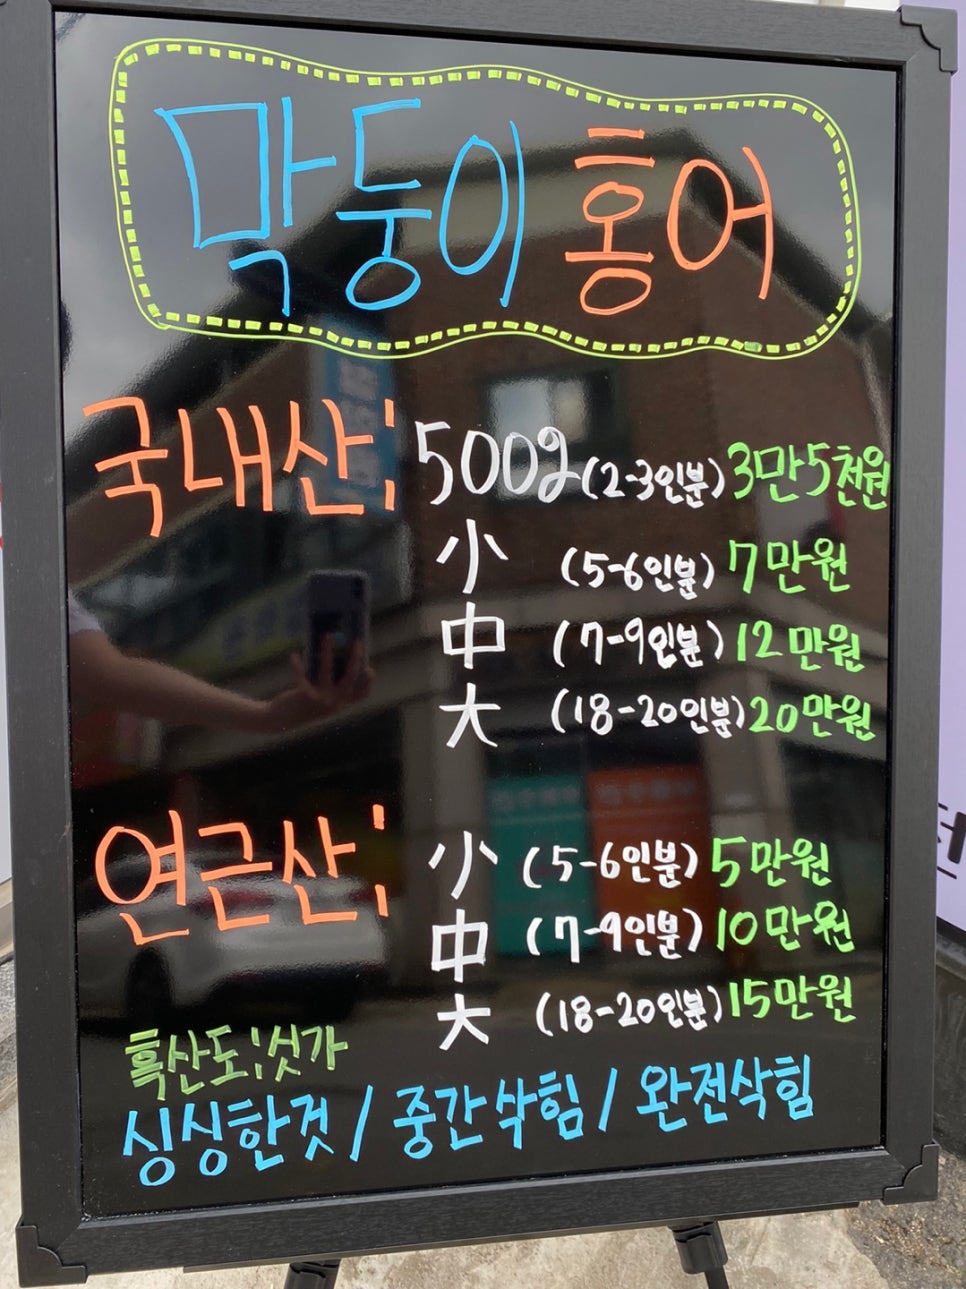 막둥이 홍어
국내산; 500g (2-3인분) 3만5천원
小 (5-6인분) 7만원
中 (7-9인분) 12만원
大 (18-20인분) 20만원
연근산; 小 (5-6인분) 5만원
中 (7-9인분) 10만원
大 (18-20인분) 15만원
흑산도; 싯가
싱싱한것 / 중간삭힘 / 완전삭힘